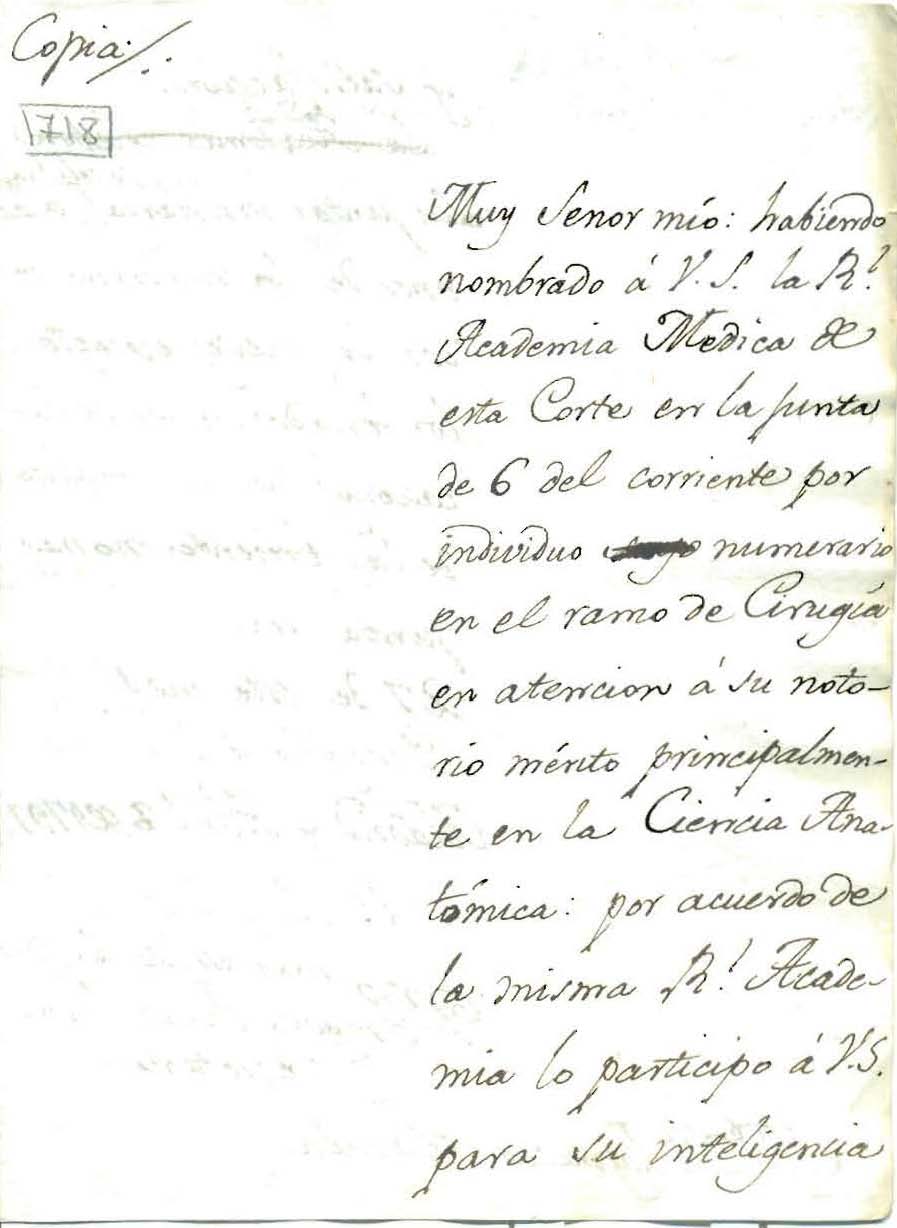 Copia./.
1718
Muy Senor mío: habiendo
nombrado á V. S. la Rl.
Academia Medica de
esta Corte en la junta
de 6 del corriente por
individuo numerario
en el ramo de Cirugía
en atencion á su noto-
rio mérito principalmen-
te en la Ciencia Ana-
tómica: por acuerdo de
la misma Rl. Acade-
mia lo participo á V.S.
para su inteligencia